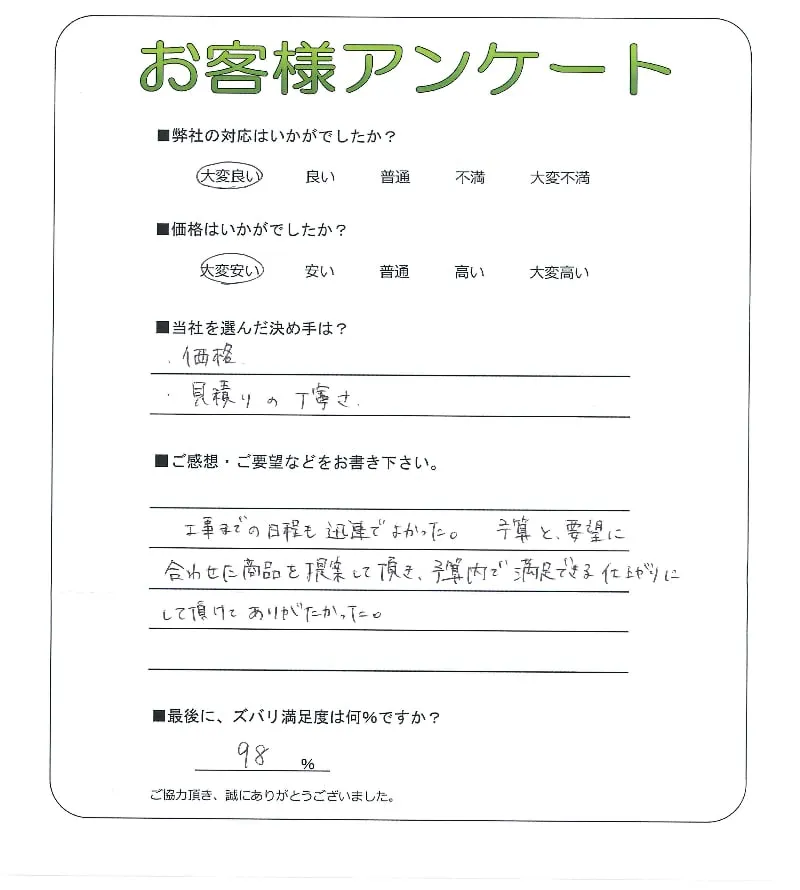 お客様アンケート
■弊社の対応はいかがでしたか？
大変良い 良い 普通 不満 大変不満
■価格はいかがでしたか？
大変安い 安い 普通 高い 大変高い
■当社を選んだ決め手は？
・価格
・見積りの丁寧さ.
■ご感想・ご要望などをお書き下さい。
工事までの日程も迅速でよかった。 予算と、要望に
合わせた商品を提案して頂き、予算内で満足できる仕上がりに
して頂けてありがたかった。
■最後に、ズバリ満足度は何%ですか？
98 %
ご協力頂き、誠にありがとうございました。